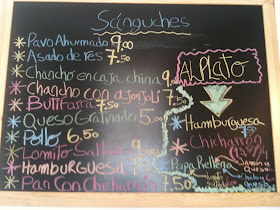 Sánguches
*Pavo Ahumado 9.00
*Asado de res 7.50
*Chancho en caja china 9.00
*Chancho con ajonjolí 7.50
*Butifarra 7.50
*Queso Gratinado 5.00
*Pollo 6.50
*Lomito Salteado 9.00
*Hamburguesa
*Pan Con Chicharrón 7.50
Al Plato
*Hamburguesa
*Chicharrón
*Papa Rellena
Jamón y
Queso